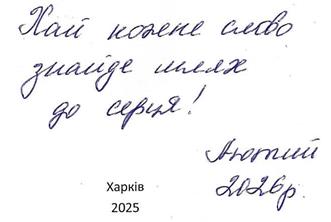 Хай кожне слово
знайде шлях
до серця!
Лютий
2026р.
Харків
2025